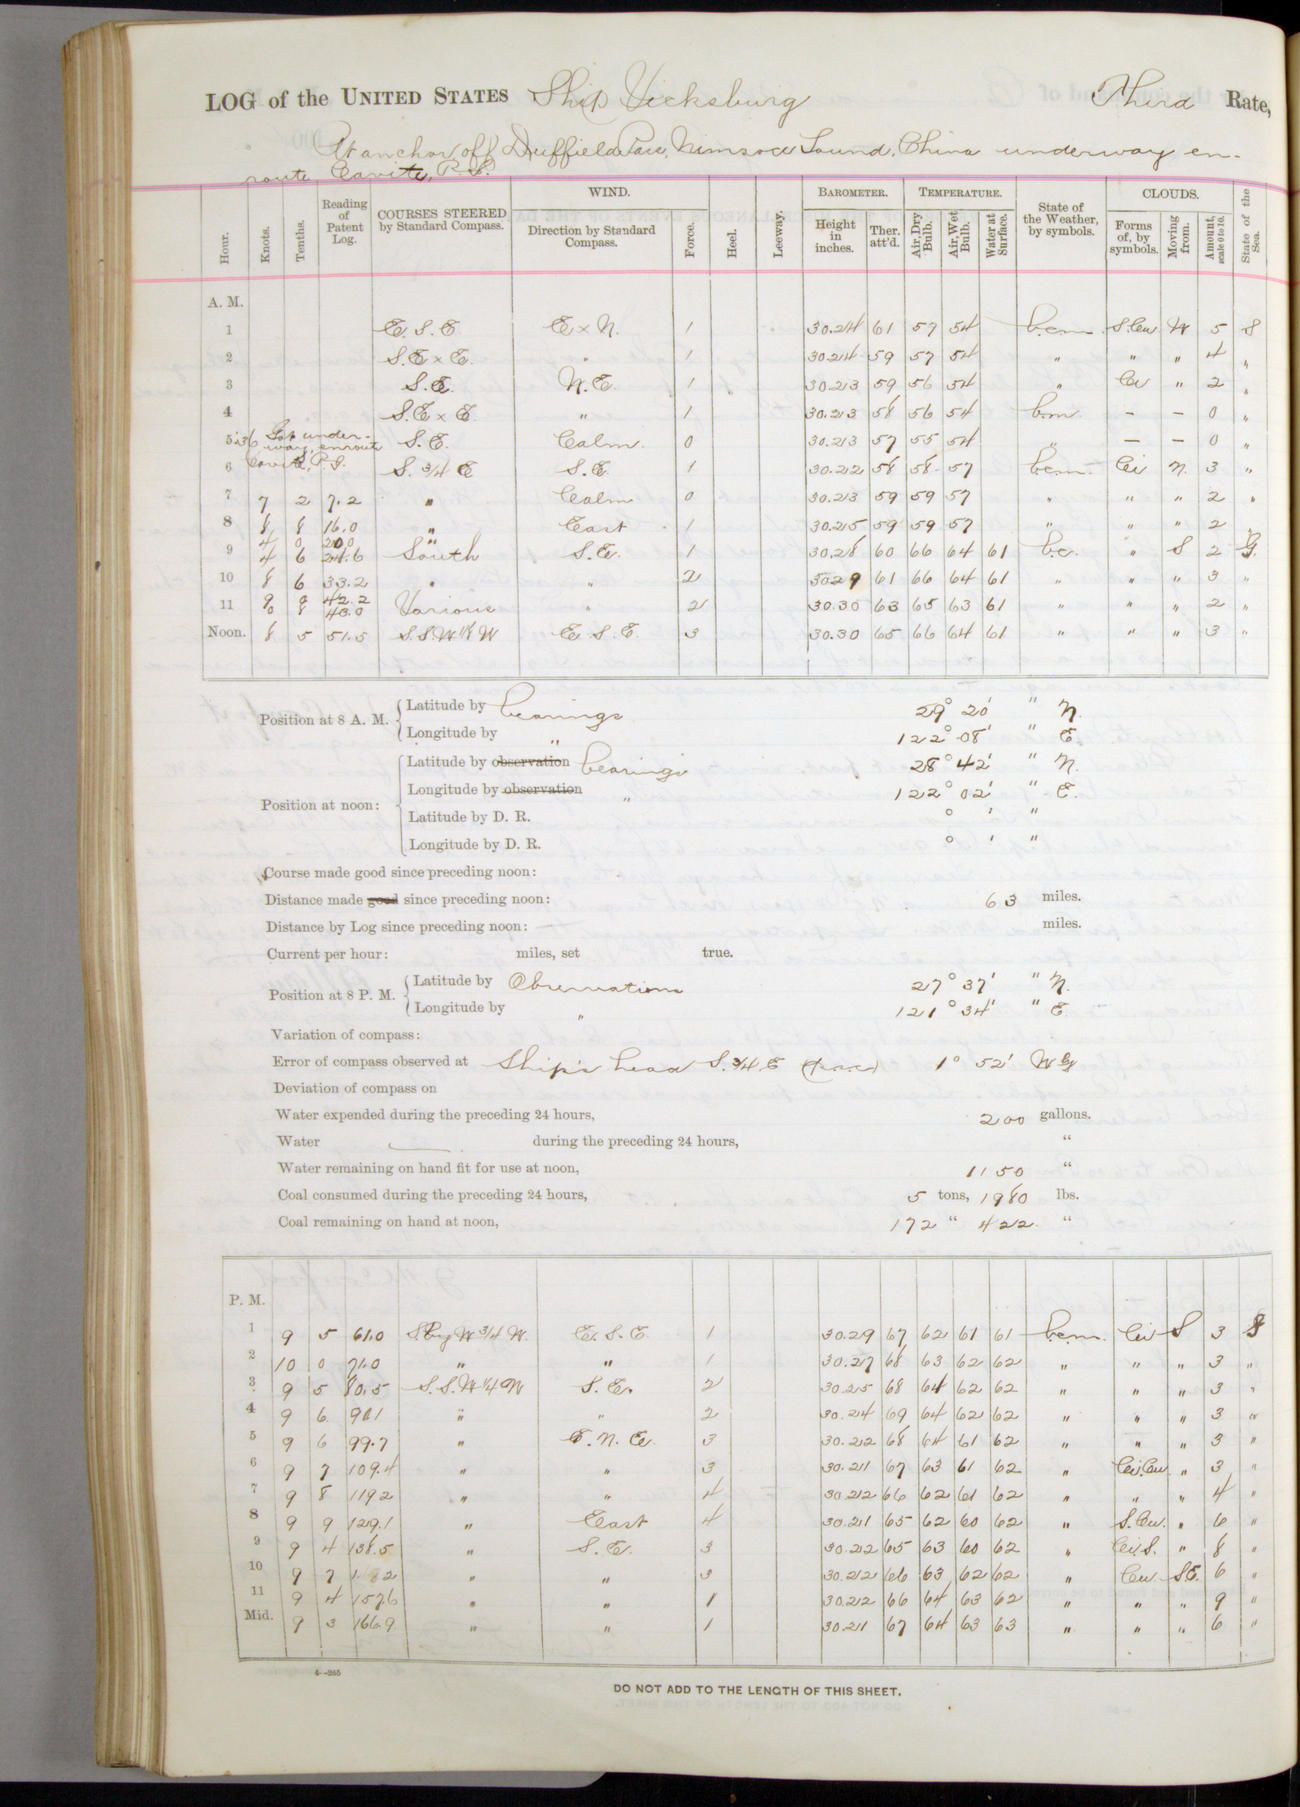 LOG of the UNITED STATES Ship Vicksburg Third Rate,
At anchor off Duffield Pass, Nimrod Sound, China underway en-
route Cavite, P.I.
Hour. Knots. Tenths. Reading of Patent Log. COURSES STEERED by Standard Compass. WIND. Direction by Standard Compass. Force. Heel. Leeway. BAROMETER. Height in inches. Ther. att'd. TEMPERATURE. Air, Dry Bulb. Air, Wet Bulb. Water at Surface. State of the Weather, by symbols. CLOUDS. Forms of, by symbols. Moving from. Amount, scale 0 to 10. State of the Sea.
A. M.
1 E. S. E E x N. 1 30.24 61 57 54 b.c.m. S.Cu W 5 S
2 S.E x E. " 1 30.24 59 57 54 " " " 4 "
3 S.E. N.E. 1 30.23 59 56 54 " Cu " 2 "
4 S.E x E " 1 30.23 58 56 54 b.m. – – 0 "
5 S.E. Calm. 0 30.23 57 55 54 " – – 0 "
5:36 Got under-
way, enroute
Cavite, P.I.
6 S. 3/4 E S.E. 1 30.22 58 58 57 b.c.m. Ci N. 3 "
7 7 2 7.2 " Calm 0 30.23 59 59 57 " " " 2 "
8 8 8 16.0 " East 1 30.25 59 59 57 " " " 2 "
4 0 20.0 "
9 4 6 24.6 South S.E. 1 30.28 60 66 64 61 b.c. " S 2 S.
10 8 6 33.2 " " 2 30.29 61 66 64 61 " " " 3 "
9 0 42.2
11 0 8 43.0 Various " 2 30.30 63 65 63 61 " " " 2 "
Noon. 8 5 51.5 S.S.W 1/8 W E. S. E. 3 30.30 65 66 64 61 " " " 3 "
Position at 8 A. M. Latitude by bearings 29° 20' " N.
Longitude by " 122° 08' " E
Position at noon: Latitude by observation bearings 28° 42' " N.
Longitude by observation " 122° 02' " E.
Latitude by D. R. ° ' "
Longitude by D. R. ° ' "
Course made good since preceding noon:
Distance made good since preceding noon: 63 miles.
Distance by Log since preceding noon: miles.
Current per hour: miles, set true.
Position at 8 P. M. Latitude by Observation 27° 37' " N.
Longitude by " 121° 34' " E.
Variation of compass:
Error of compass observed at Ship's head S. 3/4 E 1° 52' W ly
Deviation of compass on
Water expended during the preceding 24 hours, 200 gallons.
Water — during the preceding 24 hours, "
Water remaining on hand fit for use at noon, 1150 "
Coal consumed during the preceding 24 hours, 5 tons, 1980 lbs.
Coal remaining on hand at noon, 172 " 422 "
P. M.
1 9 5 61.0 S by W 3/4 W. E. S. E. 1 30.29 67 62 61 61 b.c.m. Ci S 3 S
2 10 0 71.0 " " 1 30.27 68 63 62 62 " " " 3 "
3 9 5 80.5 S.S.W 1/4 W S.E. 2 30.25 68 64 62 62 " " " 3 "
4 9 6 90.1 " " 2 30.24 69 64 62 62 " " " 3 "
5 9 6 99.7 " E. N. E. 3 30.22 68 64 61 62 " " " 3 "
6 9 7 109.4 " " 3 30.21 67 63 61 62 " Ci.Cu. " 3 "
7 9 8 119.2 " " 4 30.22 66 62 61 62 " " " 4 "
8 9 9 129.1 " East 4 30.21 65 62 60 62 " S.Cu. " 6 "
9 9 4 138.5 " S.E. 3 30.22 65 63 60 62 " Ci.S. " 8 "
10 9 7 " " 3 30.22 66 63 62 62 " Cu S.E. 6 "
11 9 4 157.6 " " 1 30.22 66 64 63 62 " " " 9 "
Mid. 9 3 166.9 " " 1 30.21 67 64 63 63 " " " 6 "
4—265
DO NOT ADD TO THE LENGTH OF THIS SHEET.